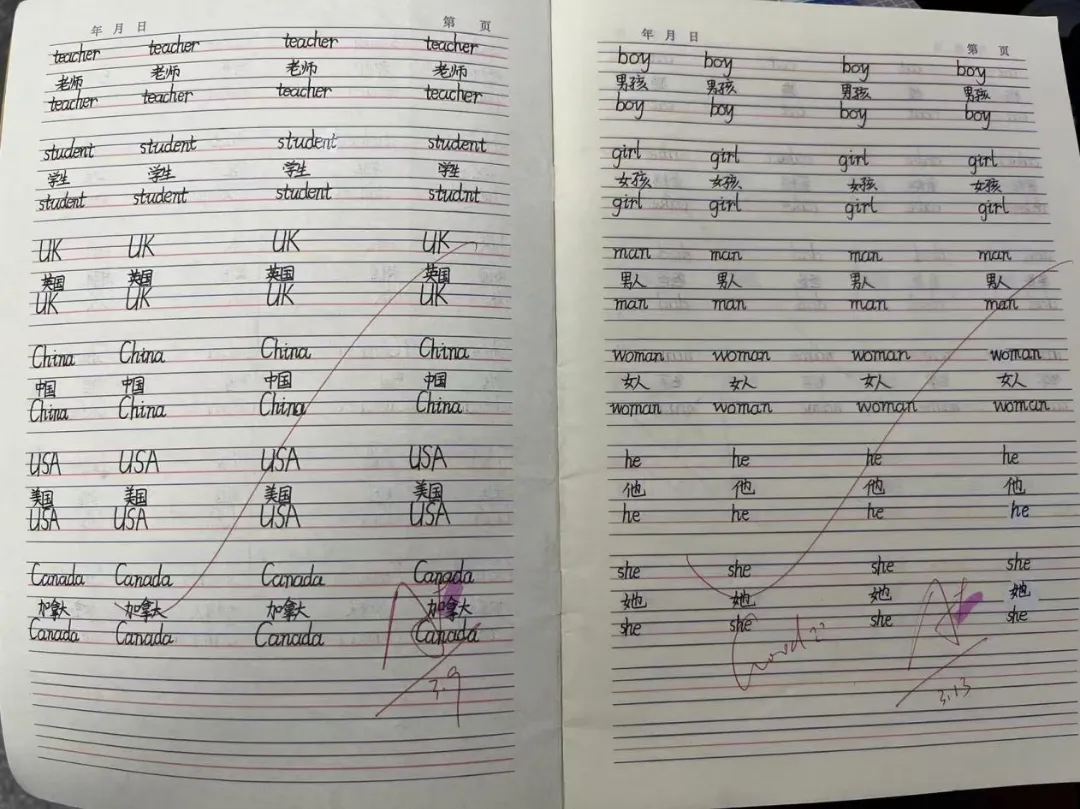 年 月 日 第 页
teacher teacher teacher teacher
老师 老师 老师 老师
teacher teacher teacher teacher
student student student student
学生 学生 学生 学生
student student student studnt
UK UK UK UK
英国 英国 英国 英国
UK UK UK UK
China China China China
中国 中国 中国 中国
China China China China
USA USA USA USA
美国 美国 美国 美国
USA USA USA USA
Canada Canada Canada Canada
加拿大 加拿大 加拿大 加拿大
Canada Canada Canada Canada
3.9
年 月 日 第 页
boy boy boy boy
男孩 男孩 男孩 男孩
boy boy boy boy
girl girl girl girl
女孩 女孩 女孩 女孩
girl girl girl girl
man man man man
男人 男人 男人 男人
man man man man
woman woman woman woman
女人 女人 女人 女人
woman woman woman woman
he he he he
他 他 他 他
he he he he
she she she she
她 她 她 她
she she she she
Good A+
3.13